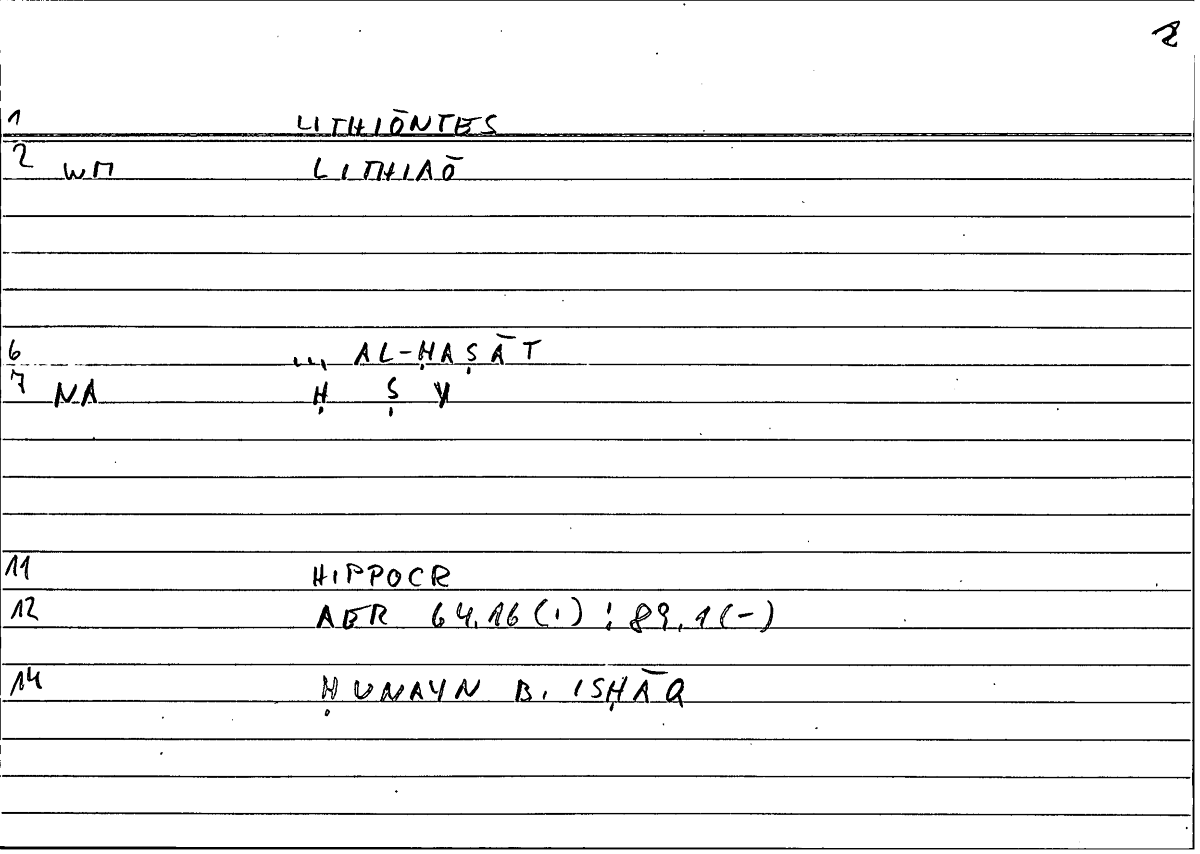 2
1 LITHIŌNTES
2 WM LITHIAŌ
6 ... AL-ḤAṢĀT
7 NA Ḥ Ṣ Y
11 HIPPOCR
12 AER 64,16 (1) : 89,1 (-)
14 ḤUNAYN B. ISḤĀQ